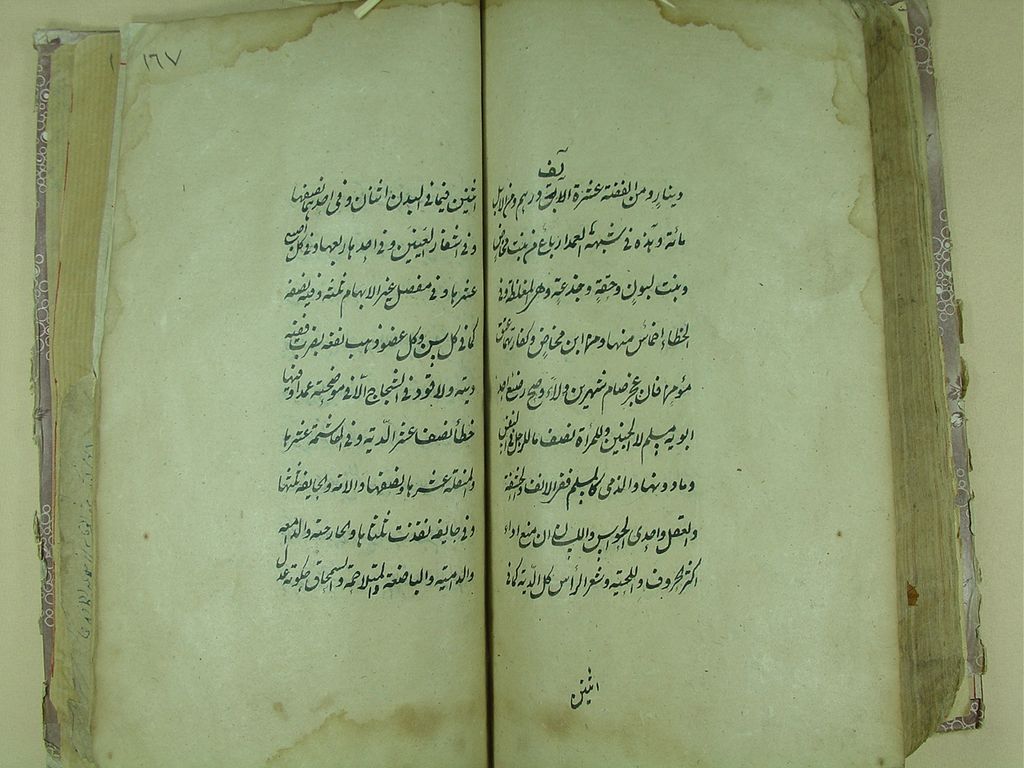 دينار ومن الفضة عشرة آلاف درهم ومن الابل
مائة وهذه في شبه العمد ارباع من بنت مخاض
وبنت لبون وحقة وجذعة وهي المغلظة وفي
الخطاء اخماس منها ومن ابن مخاض وكفارتهما عتق
مؤمن فان عجز صام شهرين ولاء وصح رضيع احد
ابويه مسلم لا الجنين وللمراة نصف ما للرجل في النفس
وما دونها والذمي كالمسلم ففي الانف والحشفة
والعقل واحدى الحواس واللسان ان منع اداء
اكثر الحروف واللحية وشعر الرأس كل الدية كما في
اثنين
١٦٧
اثنين فيما في البدن اثنان وفي احدهما نصفها
وفي اشفار العينين وفي احدها ربعها وفي كل اصبع
عشرها وفي مفصل غير الابهام ثلثه وفيه نصفه
كما في كل سن وكل عضو ذهب نفعه بضرب ففيه
ديته ولا قود في الشجاج الا في موضحة عمدا وفيها
خطأ نصف عشر الدية وفي الهاشمة عشرها
والمنقلة عشرها ونصفها والآمة والجايفة ثلثها
وفي جايفة نفذت ثلثاها والحارصة والدامعة
والدامية والباضعة والمتلاحمة والسمحاق حكومة عدل